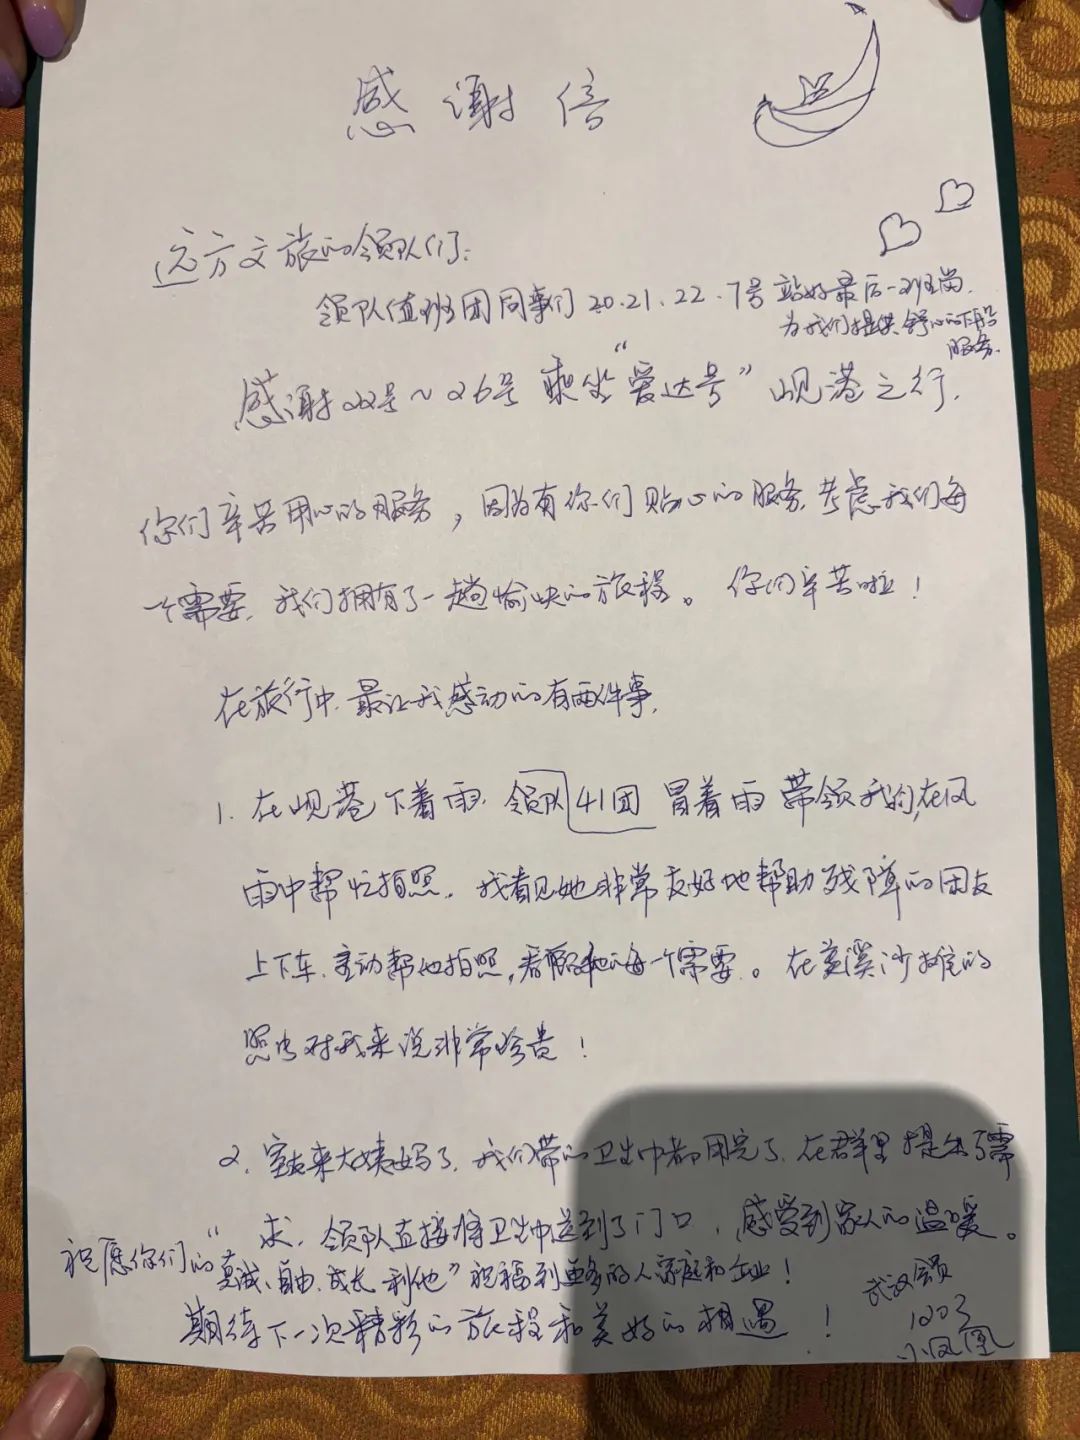 感谢信
远方文旅的领队们:
领队值班团同事们 20.21.22.7号 站好最后一班岗.
为我们提供舒心的下船
服务.
感谢22号~26号 乘坐“爱达号”岘港之行.
你们辛苦用心的服务,因为有你们贴心的服务.考虑我们每
一个需要.我们拥有了一趟愉快的旅程。你们辛苦啦!
在旅行中.最让我感动的有两件事.
1.在岘港下着雨.领队41团 冒着雨带领我们,在风
雨中帮忙拍照.我看见她非常友好地帮助残障的团友
上下车.主动帮他拍照,看顾他的每一个需要.。在美溪沙摊的
照片对我来说非常珍贵!
2.室友来大姨妈了.我们带的卫生巾都用完了.在群里提出了需
求.领队直接将卫生巾送到了门口,感受到家人的温暖。
祝愿你们的“真诚、自由、成长、利他”祝福到更多的人家庭和企业!
期待下一次精彩的旅程和美好的相遇!
武汉
小凤凰